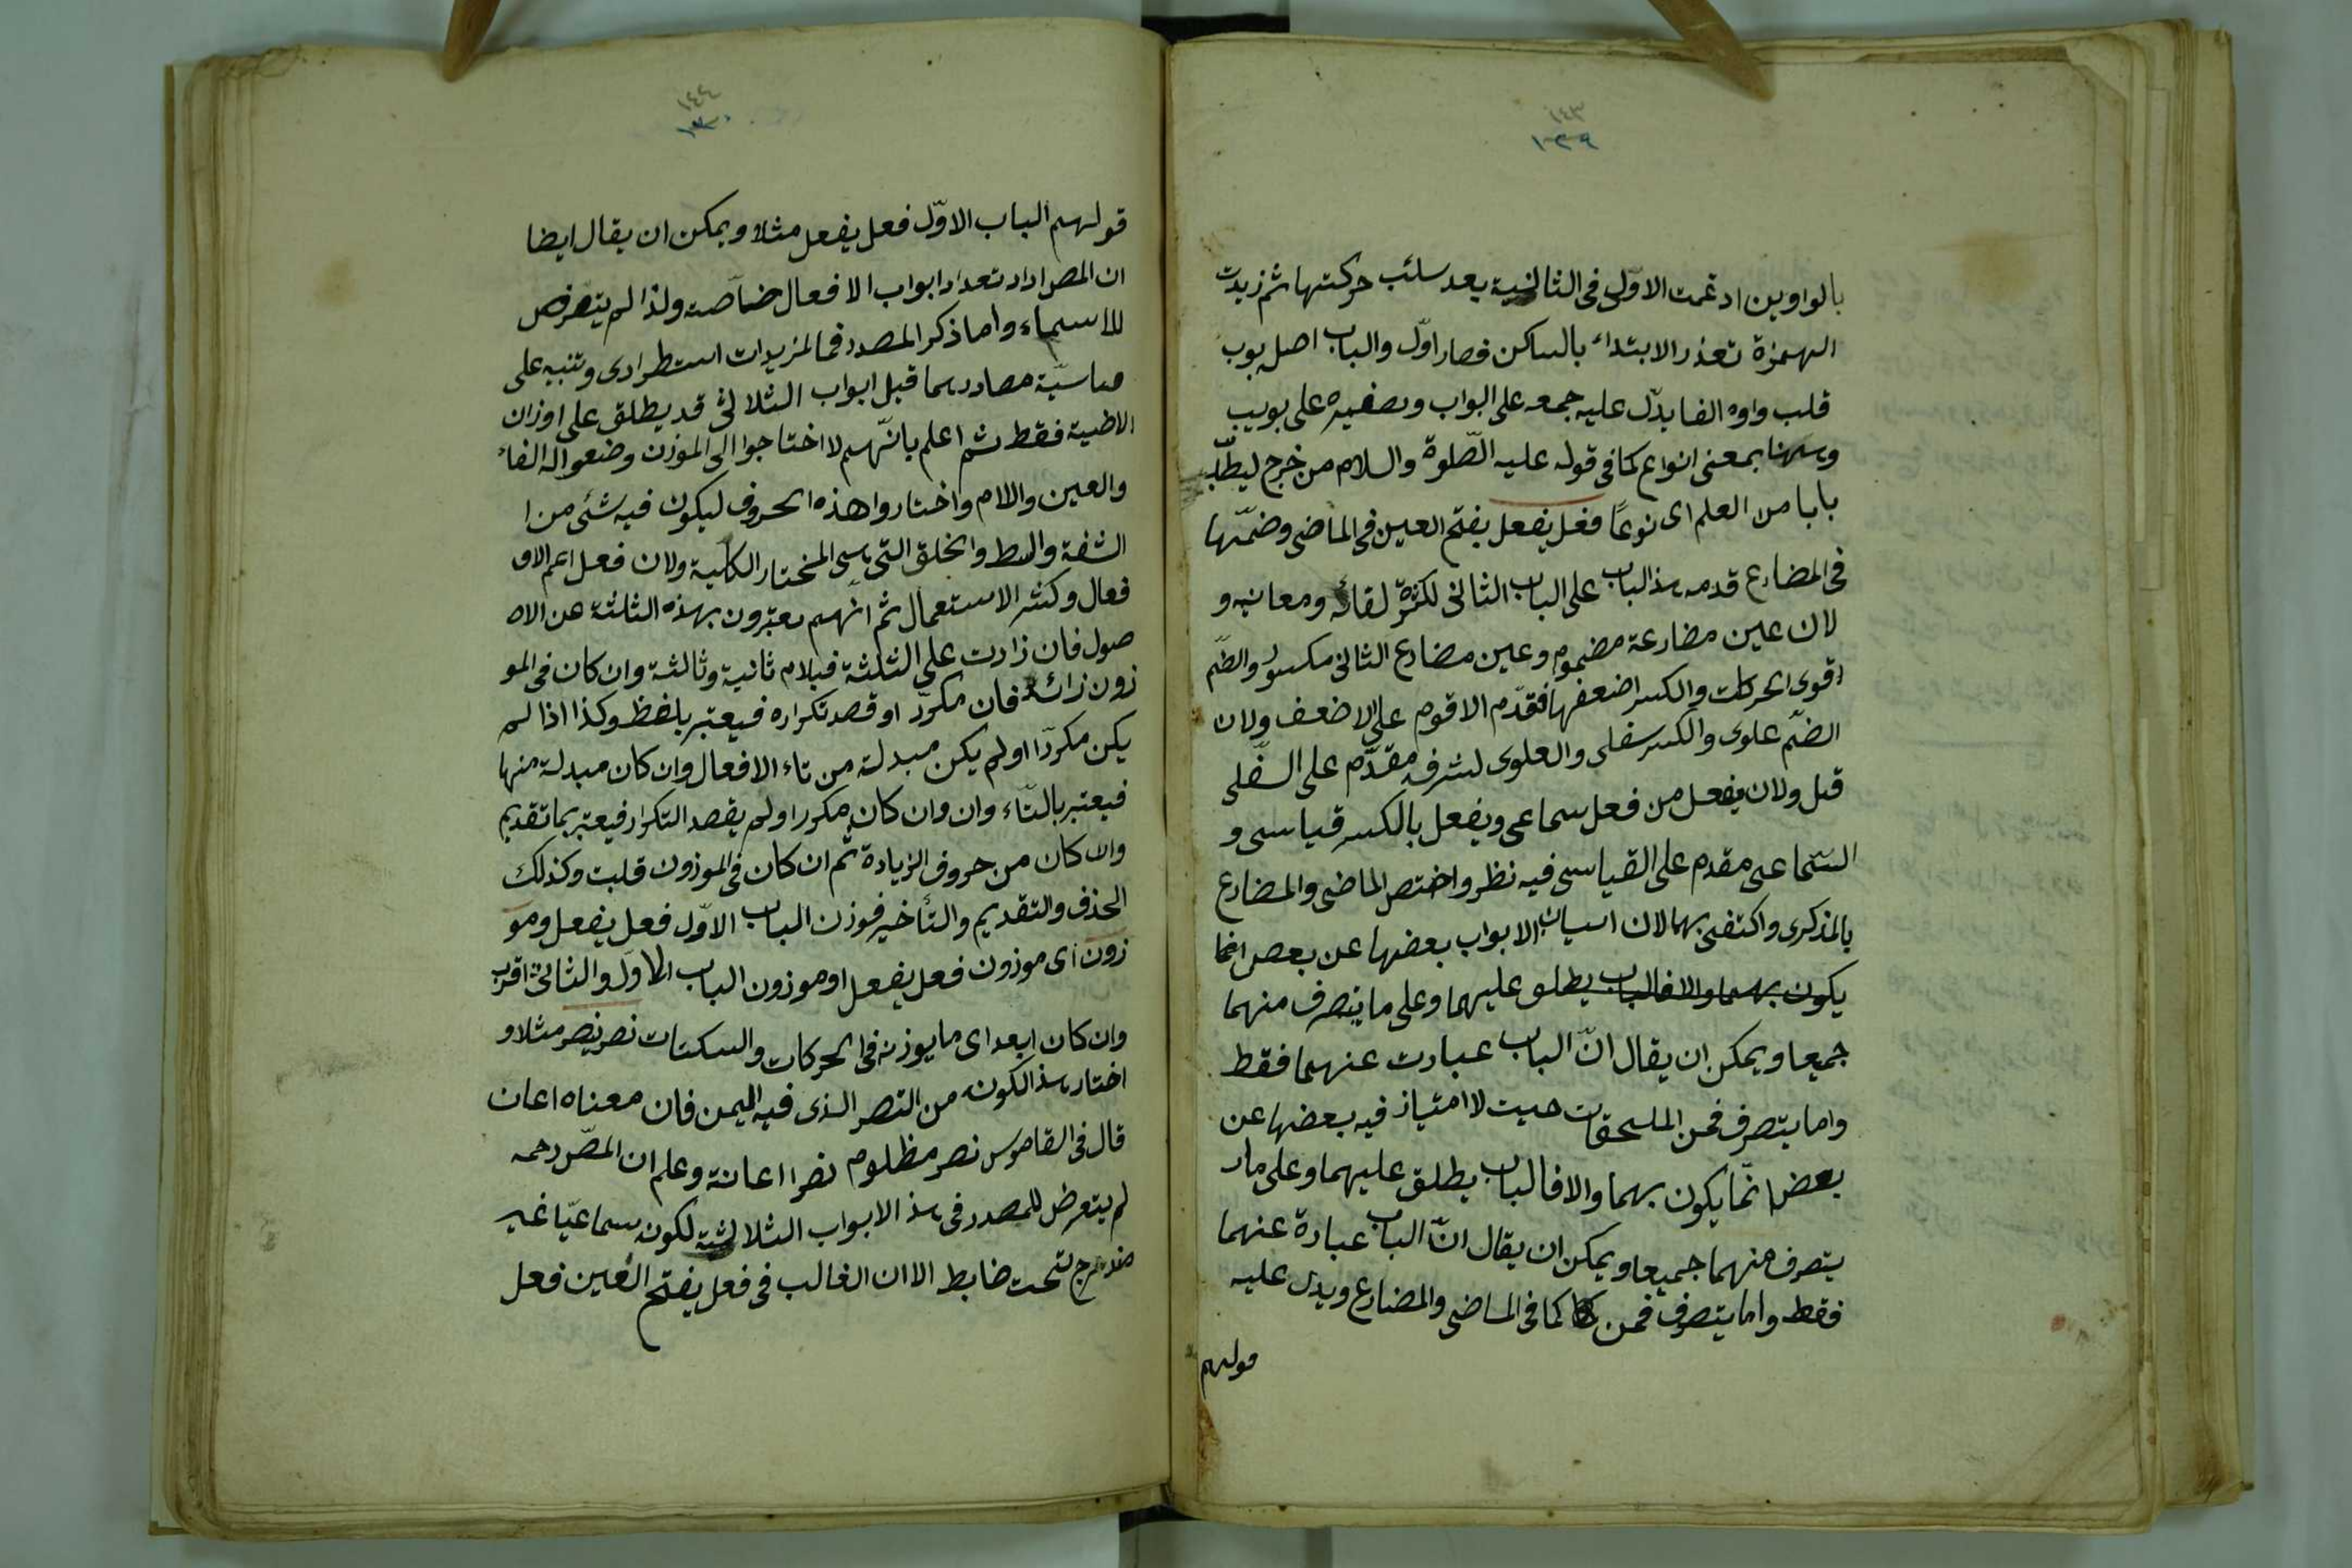 ١٤٣
١٢٩
بالواوين ادغمت الاوّلى فى الثانية بعد سلب حركتها ثم زيدت
الهمزة تعذر الابتداء بالساكن فصار اوّل والباب اصله بوب
قلب واوه الفا يدّل عليه جمعه على ابواب وتصغيره على بويب
وههنا بمعنى انواع كما فى قوله عليه الصّلوة والسلام من خرج ليطلب
بابا من العلم اى نوعًا فعل يفعل بفتح العين فى الماضى وضمّها
فى المضارع قدم هذ الباب على الباب الثانى لكثرة لغاته ومعانيه و
لان عين مضارعة مضموم وعين مضارع الثانى مكسور والضّم
اقوى الحركات والكسر اضعفها فقدّم الاقوم على الاضعف ولان
الضّم علوى والكسر سفلى والعلوى لشرفه مقدّم على السّفلى
قيل ولان يفعل من فعل سماعى ويفعل بالكسر قياسى و
السّماعى مقدم على القياسى فيه نظر واختص الماضى والمضارع
بالمذكرى واكتفى بهما لان اسيان الابواب بعضها عن بعض انما
يكون بهما والا فالباب يطلق عليهما وعلى ما يتصرف منهما
جميعا ويمكن ان يقال انّ الباب عبارت عنهما فقط
واما يتصرف فمن الملحقات حيث لا امتياز فيه بعضها عن
بعض انّما يكون بهما والا فالباب يطلق عليهما وعلى ما
يتصرف منهما جميعا ويمكن ان يقال انّ الباب عبارة عنهما
فقط واما يتصرف فمن كما فى الماضى والمضارع ويدل عليه
قولهم
١٤٤
١٣٠
قولهم الباب الاوّل فعل يفعل مثلا ويمكن ان يقال ايضا
ان المص اراد تعداد ابواب الافعال خاصّة ولذا لم يتعرض
للاسماء واما ذكر المصدر فى المزيدات استطرادى وتنبيه على
مناسبّة مصادرهما قبل ابواب الثلاثى قد يطلق على اوزان
فقط ثم اعلم بانّهم لا احتاجوا الى الموزن وضعوا له الفاء
والعين واللام واختاروا هذه الحروف ليكون فيه شئى من ا
الشفة والسط والحلق التى هى المختار الكلية ولان فعل اعم الاف
فعال وكثر الاستعمال ثم انهم يعتبرون بهذه الثلثة عن الاص
صول فان زادت على الثلثة فبلام ثانية وثالثة وان كان فى المو
زون زائد فان مكرّر او قصد تكراره فيعتبر بلفظ وكذا اذا لم
يكن مكررّا او لم يكن مبدلة من تاء الافعال وان كان مبدلة منها
فيعتبر بالتّاء وان وان كان مكررا ولم يقصد التكرار فيعتبر بما تقديم
والا كان من حروف الزيادة ثم ان كان فى الموزون قلبت وكذلك
الحذف والتقديم والتأخير فوزن الباب الاوّل فعل يفعل ومو
زون اى موزون فعل يفعل او موزون الباب الاوّل والثانى اقرب
وان كان ابعد اى ما يوزنه فى الحركات والسكنات نصر ينصر مثلا و
اختار هذ الكونه من النصر الذى فيه اليمن فان معناه اعان
قال فى القاموس نصر مظلوم نصرا اعانة وعلم ان المصّ رحمه
لم يتعرض للمصدر فى هذ الابواب الثلاثة لكونه سماعيّا غير
تحت ضابط الا ان الغالب فى فعل بفتح العين فعل